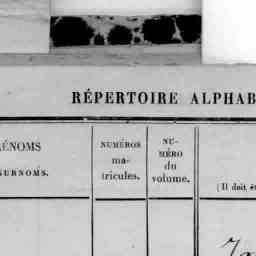 RÉPERTOIRE ALPHAB
ÉNOMS
SURNOMS.
NUMÉROS
ma-
tricules.
NU-
MÉRO
du
volume.
(Il doit êt